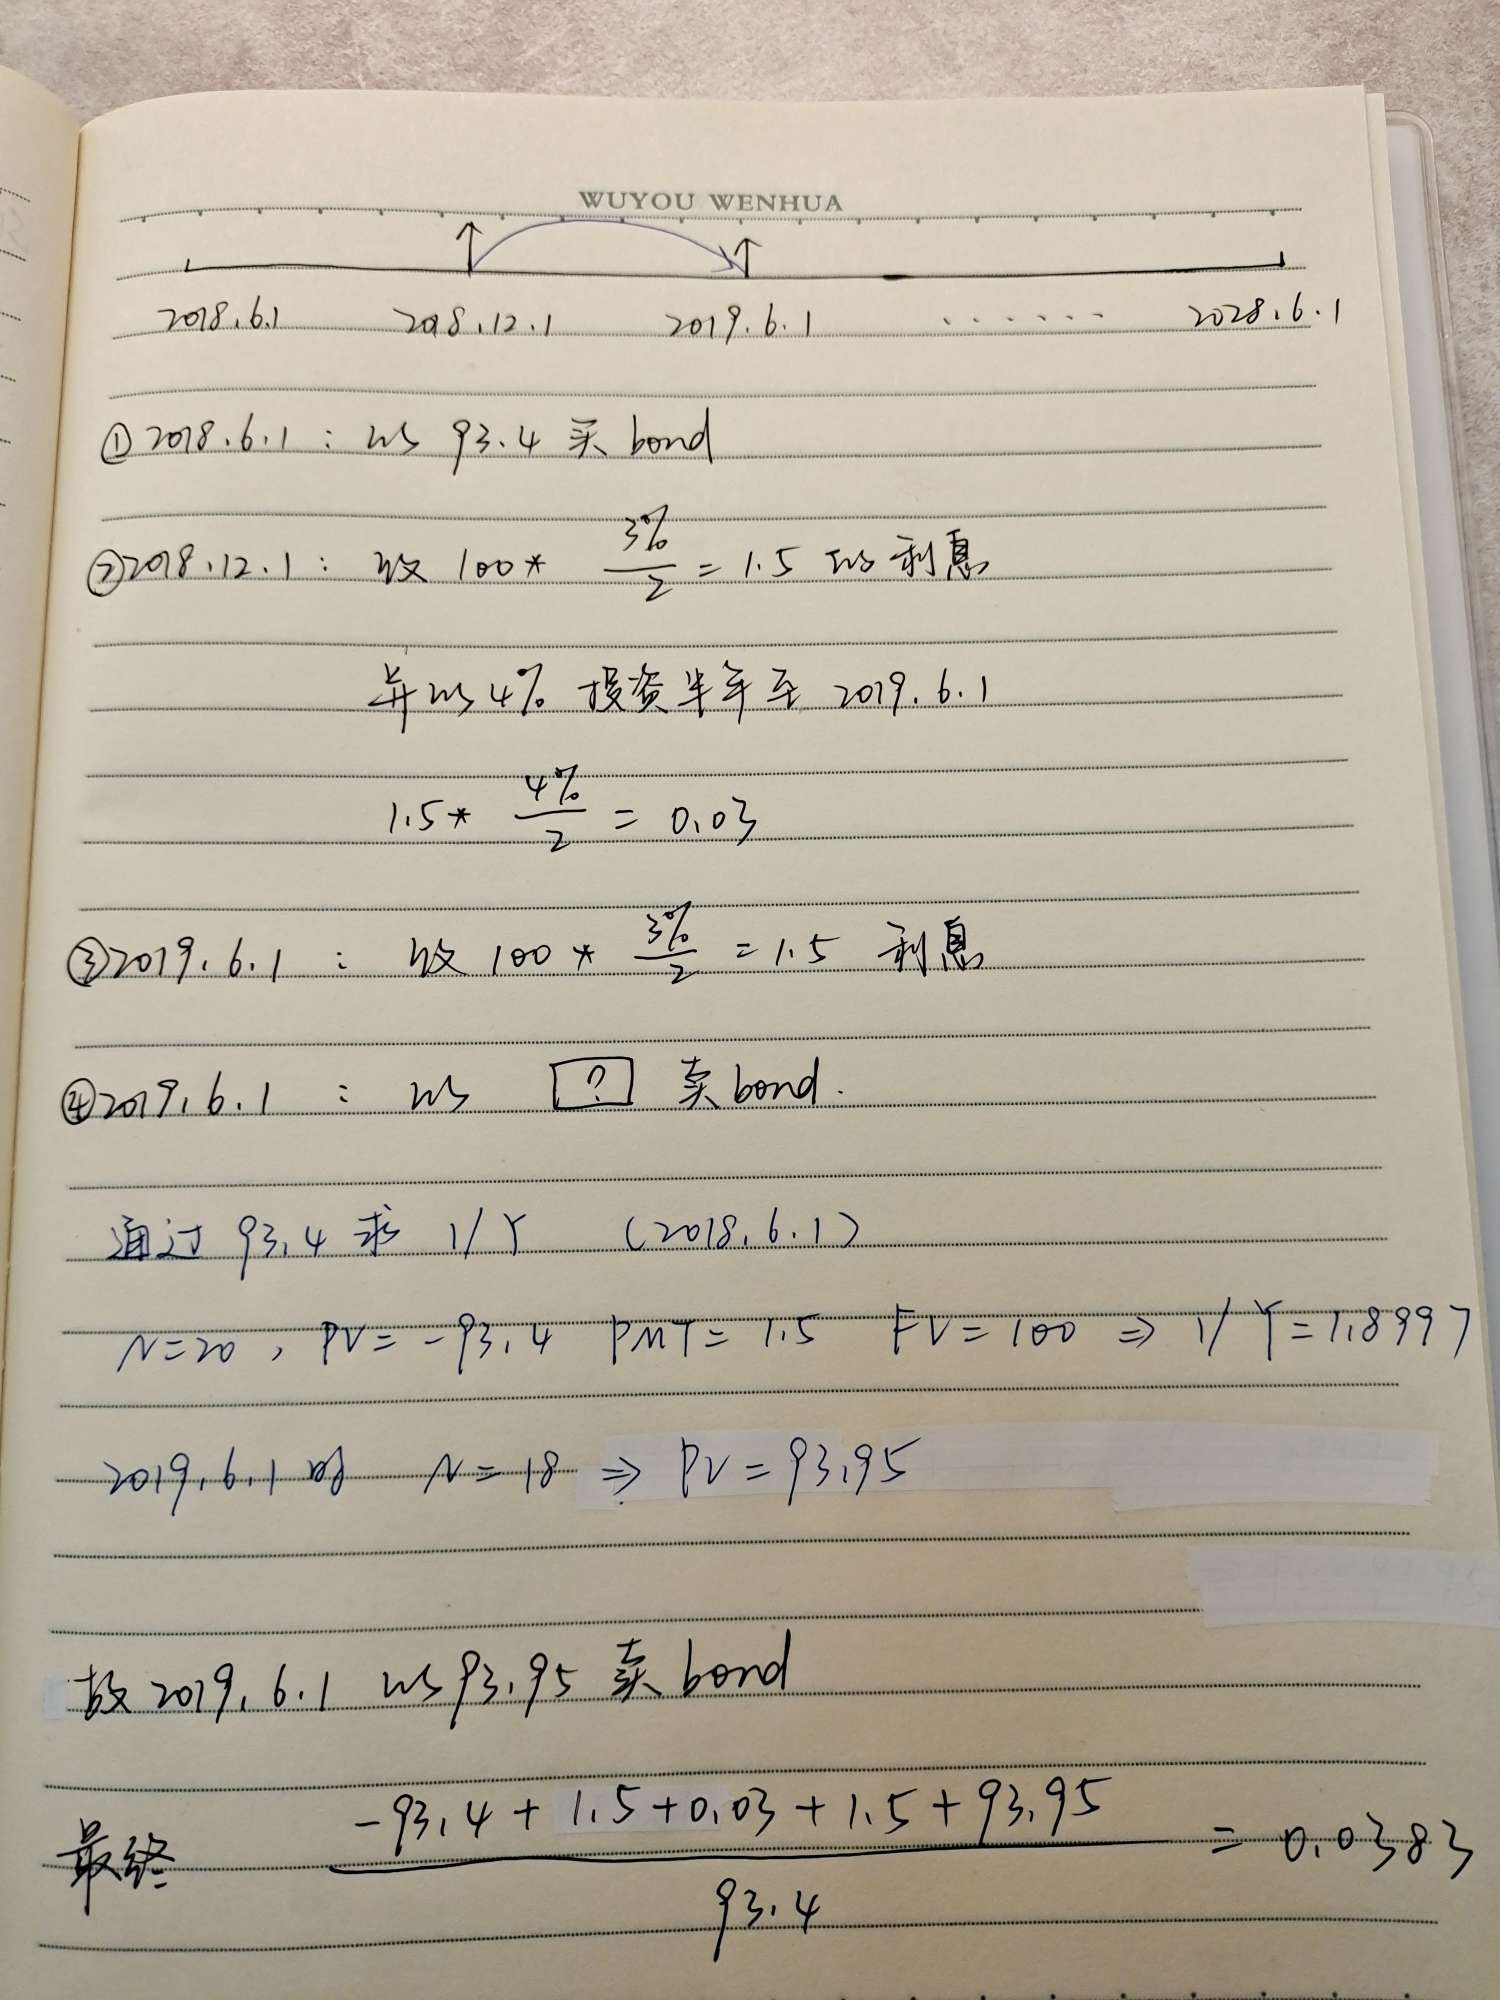 WUYOU WENHUA
2018.6.1 2018.12.1 2019.6.1 ...... 2028.6.1
①2018.6.1: 以 93.4 买 bond
②2018.12.1: 收 100* 3%/2 = 1.5 的利息
并以4% 投资半年至 2019.6.1
1.5* 4%/2 = 0.03
③2019.6.1: 收 100* 3%/2 = 1.5 利息
④2019.6.1: 以 ? 卖bond.
通过 93.4 求 I/Y (2018.6.1)
N=20, PV=-93.4 PMT=1.5 FV=100 ⇒ I/Y=1.8997
2019.6.1时 N=18 ⇒ PV=93.95
故2019.6.1 以93.95 卖bond
最终 (-93.4+1.5+0.03+1.5+93.95)/93.4 = 0.0383